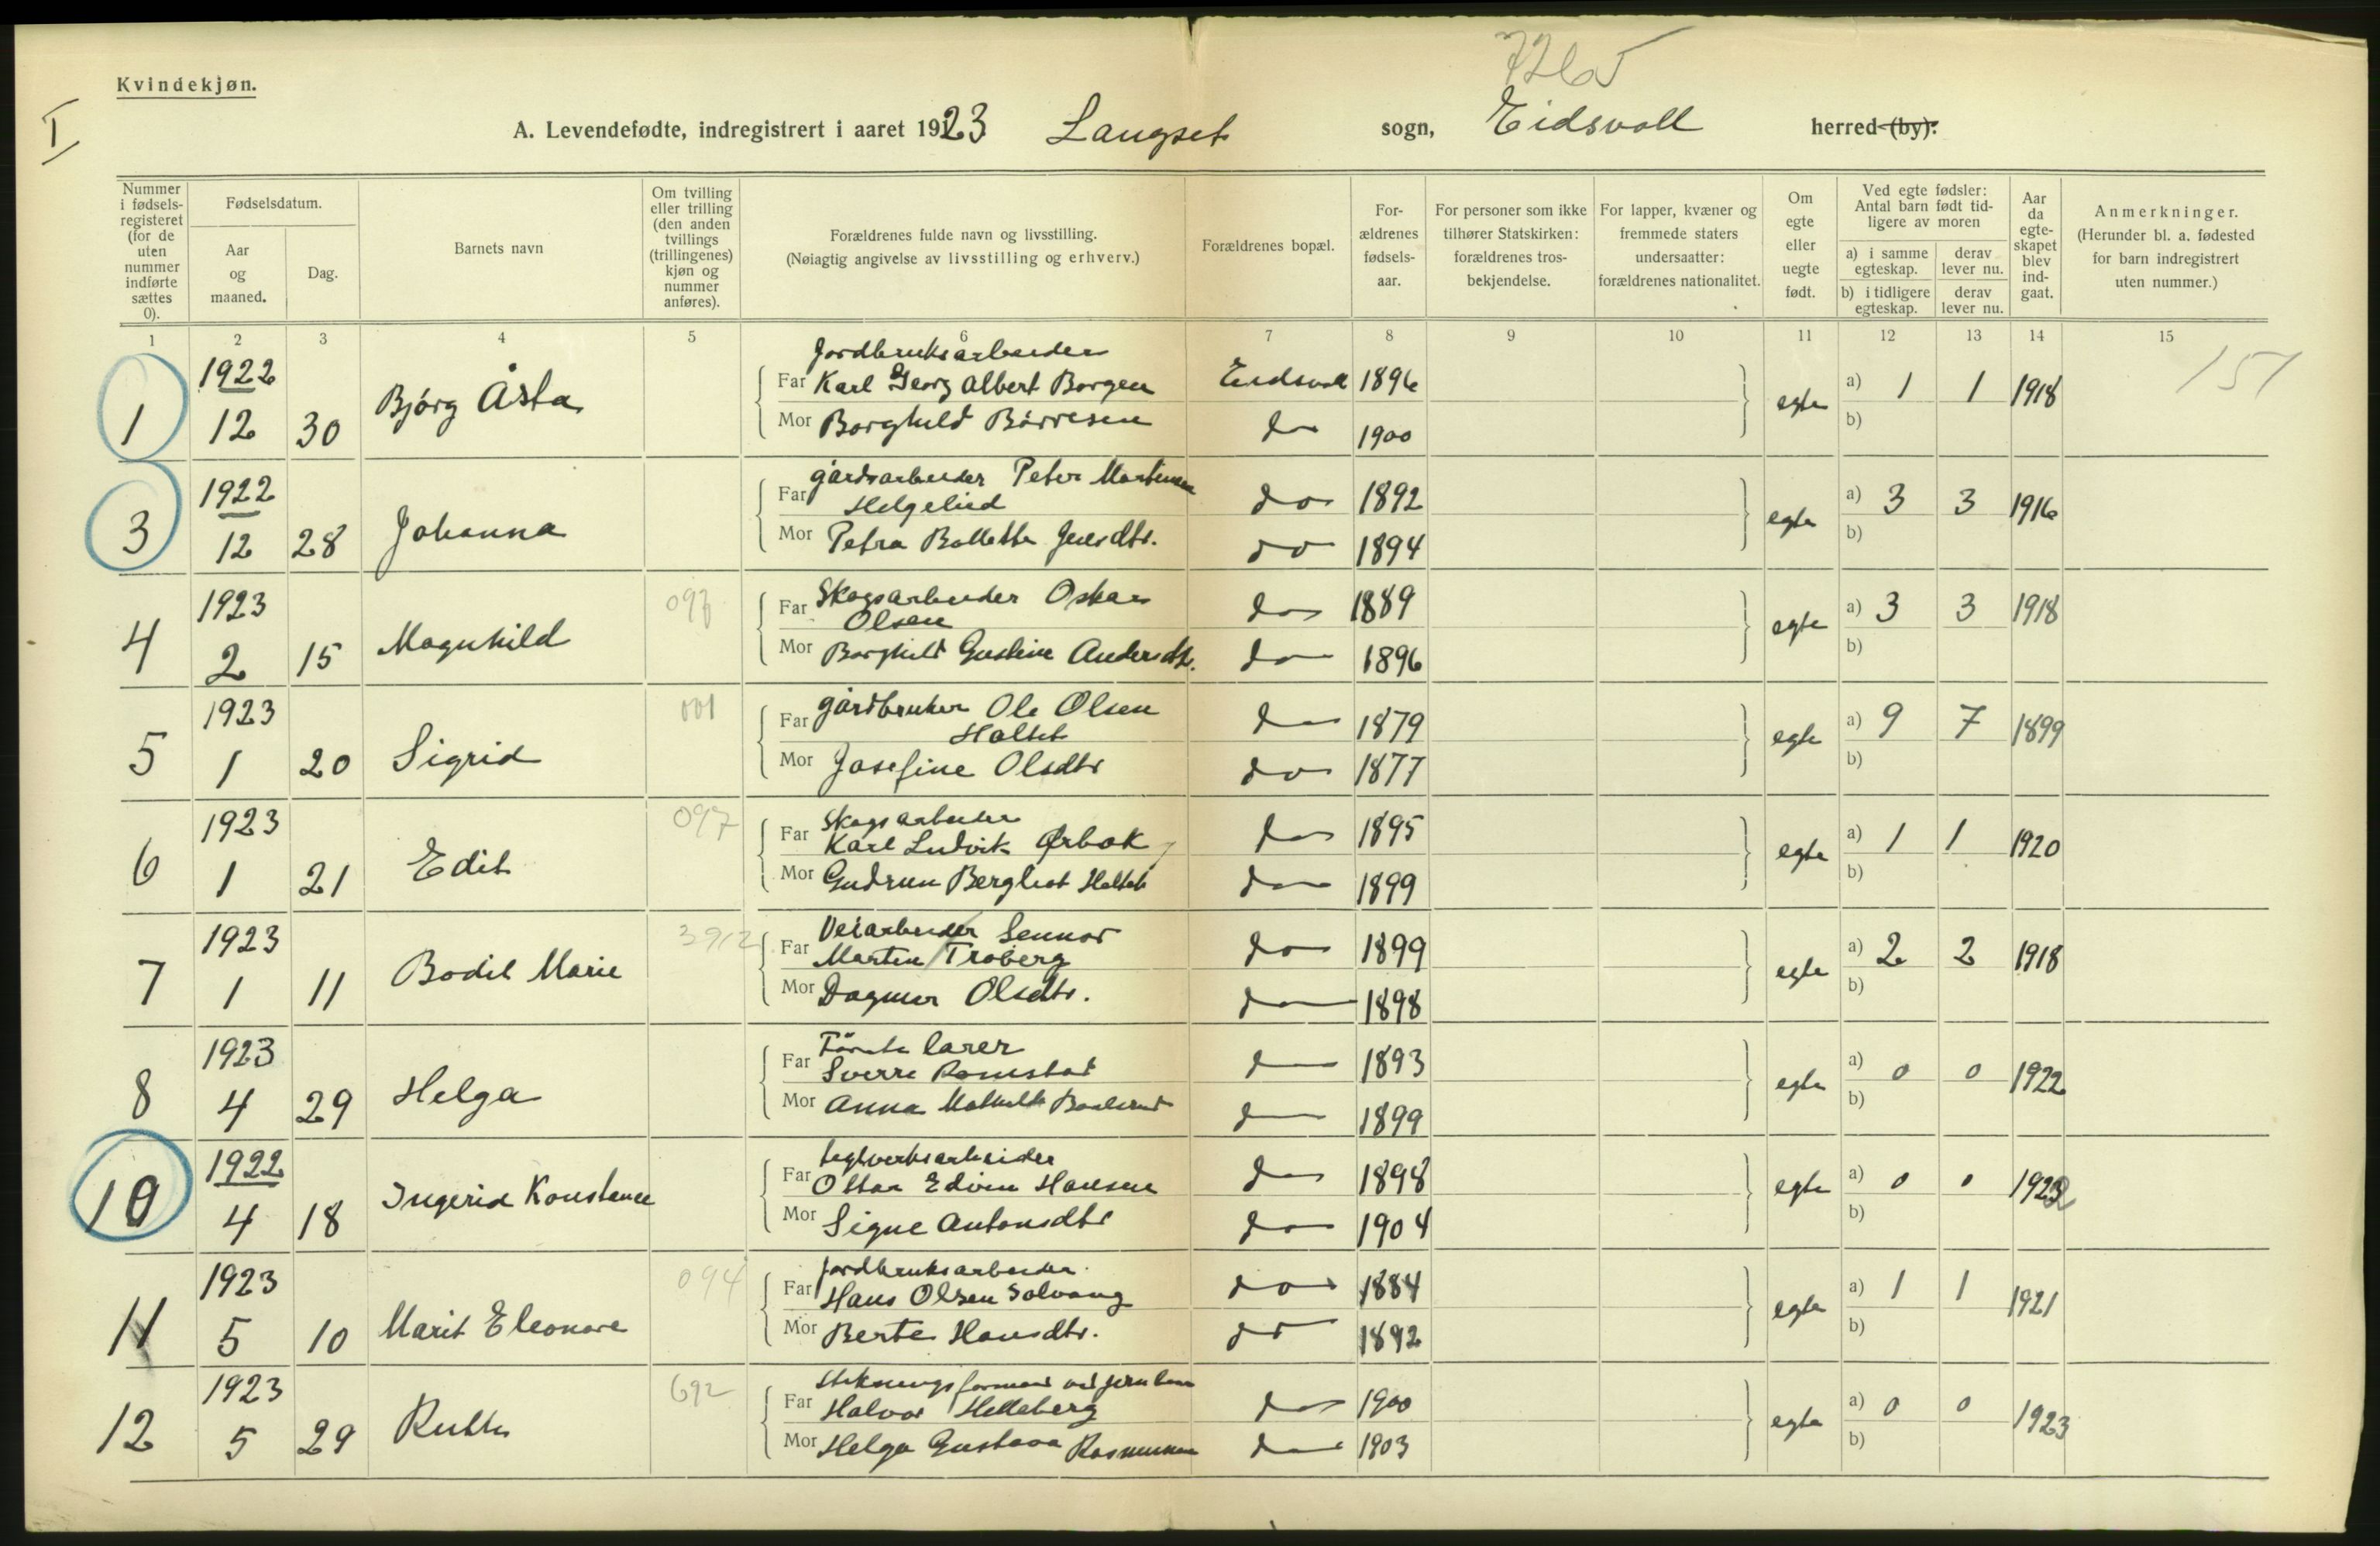 7265
Kvindekjøn.
I
A. Levendefødte, indregistrert i aaret 1923 Langset sogn, Eidsvoll herred (by):
Nummer i fødsels-registeret (for de uten nummer indførte sættes 0).
Fødselsdatum.
Aar og maaned.
Dag.
Barnets navn
Om tvilling eller trilling (den anden tvillings (trillingenes) kjøn og nummer anføres).
Forældrenes fulde navn og livsstilling.
(Nøiagtig angivelse av livsstilling og erhverv.)
Forældrenes bopæl.
For-ældrenes fødsels-aar.
For personer som ikke tilhører Statskirken: forældrenes tros-bekjendelse.
For lapper, kvæner og fremmede staters undersaatter: forældrenes nationalitet.
Om egte eller uegte født.
Ved egte fødsler: Antal barn født tid-ligere av moren
a) i samme egteskap.
derav lever nu.
b) i tidligere egteskap.
derav lever nu.
Aar da egte-skapet blev ind-gaat.
Anmerkninger.
(Herunder bl. a. fødested for barn indregistrert uten nummer.)
1 2 3 4 5 6 7 8 9 10 11 12 13 14 15
151
1922
Jordbruksarbeider
1 12 30 Bjørg Åsta Far Karl Georg Albert Borgen Eidsvoll 1896 egte a) 1 1 1918
Mor Borghild Børresen do 1900 b)
1922
gårdsarbeider Peter Martinsen
3 12 28 Johanna Far Helgelied do 1892 egte a) 3 3 1916
Mor Petra Bollette Jensdtr. do 1894 b)
1923 097
Skogsarbeider Oskar
4 2 15 Magnhild Far Olsen do 1889 egte a) 3 3 1918
Mor Borghild Gustine Andersdtr. do 1896 b)
1923 001
gårdbruker Ole Olsen
5 1 20 Sigrid Far Holtet do 1879 egte a) 9 7 1899
Mor Josefine Olsdtr do 1877 b)
1923 097
Skogsarbeider
6 1 21 Edit Far Karl Ludvik Ørbek do 1895 egte a) 1 1 1920
Mor Gudrun Bergliot Holtet do 1899 b)
1923 3912
Veiarbeider Gunnar
7 1 11 Bodil Marie Far Martin Troberg do 1899 egte a) 2 2 1918
Mor Dagmar Olsdtr. do 1898 b)
1923
Første lærer
8 4 29 Helga Far Sverre Romstad do 1893 egte a) 0 0 1922
Mor Anna Mathilde do 1899 b)
1922
teglverksarbeider
10 4 18 Ingerid Konstance Far Ottar Edvin Hansen do 1898 egte a) 0 0 1922
Mor Signe Antonsdtr do 1904 b)
1923 094
Jordbruksarbeider
11 5 10 Marit Eleonore Far Hans Olsen Solvang do 1884 egte a) 1 1 1921
Mor Berte Hansdtr. do 1892 b)
1923 692
formand ved jernban
12 5 29 Ruth Far Halvor Helleberg do 1900 egte a) 0 0 1923
Mor Helga Gustava Rasmussen do 1903 b)